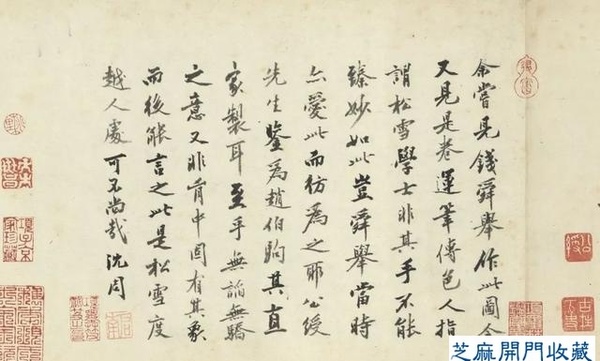 余嘗見錢舜舉作此圖今
又見是卷運筆傳色人指
謂松雪學士非其手不能
臻妙如此豈舜舉當時
亦愛此而彷為之耶公綬
先生鑒為趙伯駒其直
家製耳至乎無諂無驕
之意又非胸中固有其象
而後能言之此是松雪度
越人處可不尚哉沈周
公綬
項子京家珍藏
芝麻開門收藏